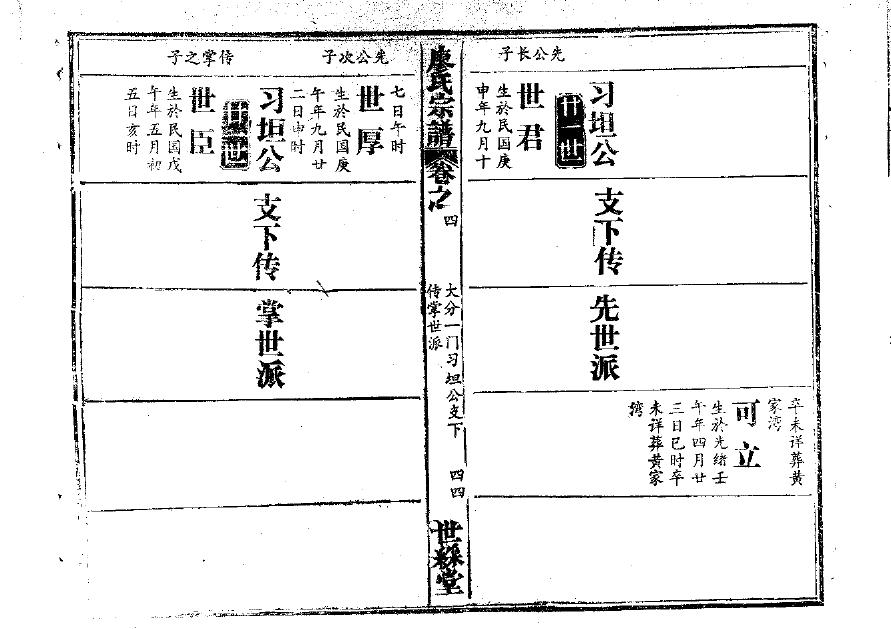 卒未详葬黄
家湾
可立
生於光绪壬
午年四月廿
三日巳时卒
未详葬黄家
湾
习坦公
支下传
先世派
廿一世
先公长子
世君
生於民国庚
申年九月十
廖氏宗譜
卷之四
大分一门习坦公支下
传掌世派
四四
世綵堂
七日午时
先公次子
世厚
生於民国庚
午年九月廿
二日申时
习坦公
支下传
掌世派
廿一世
传掌之子
世臣
生於民国戊
午年五月初
五日亥时